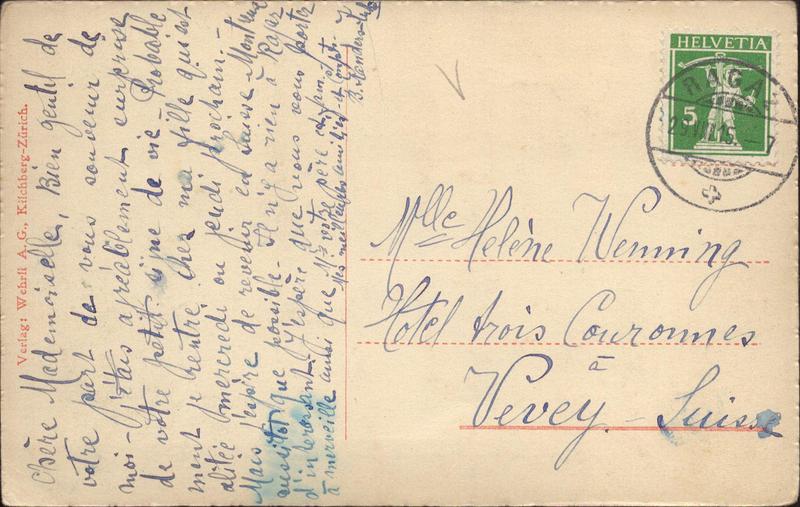 Chère Mademoiselle, Bien gentil de
votre part de vous souvenir de
moi - j'étais agréablement surprise
de votre petit signe de vie. Probable
ment je rentre chez ma fille qui est
alitée mercredi ou jeudi prochain. -
Mais j'espère de revenir en Suisse
aussitôt que possible. Il n'y a rien à Ragaz
d'intéressant. J'espère que vous vous portez
à merveille aussi que Mr votre père
mes meilleures amitiés et
B.
Verlag: Wehrli A.G., Kilchberg-Zürich.
HELVETIA
5
RAGAZ
Mlle Helène Wenning
Hotel trois Couronnes
à
Vevey - Suisse